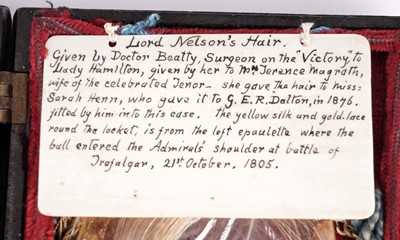 Lord Nelson's Hair.
Given by Doctor Beatty, Surgeon on the "Victory", to
Lady Hamilton, given by her to Mrs Terence Magrath,
wife of the celebrated Tenor - she gave the hair to Miss:
Sarah Henn, who gave it to G.E.R. Dalton, in 1876.
fitted by him into this case. The yellow silk and gold-lace
round the locket, is from the left epaulette where the
ball entered the Admirals' shoulder at battle of
Trafalgar, 21st October. 1805.